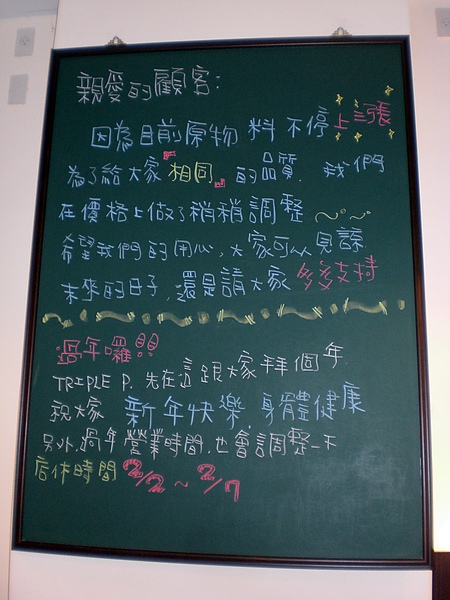 親愛的顧客:
因為目前原物料不停上漲
為了給大家『相同』的品質. 我們
在價格上做了稍稍調整 ~。~。
希望我們的用心,大家可以見諒
未來的日子,還是請大家 多多支持
過年囉!!
TRIPLE P. 先在這跟大家拜個年
祝大家 新年快樂 身體健康
另外,過年營業時間,也會調整一下
店休時間 2/2 ~ 2/7